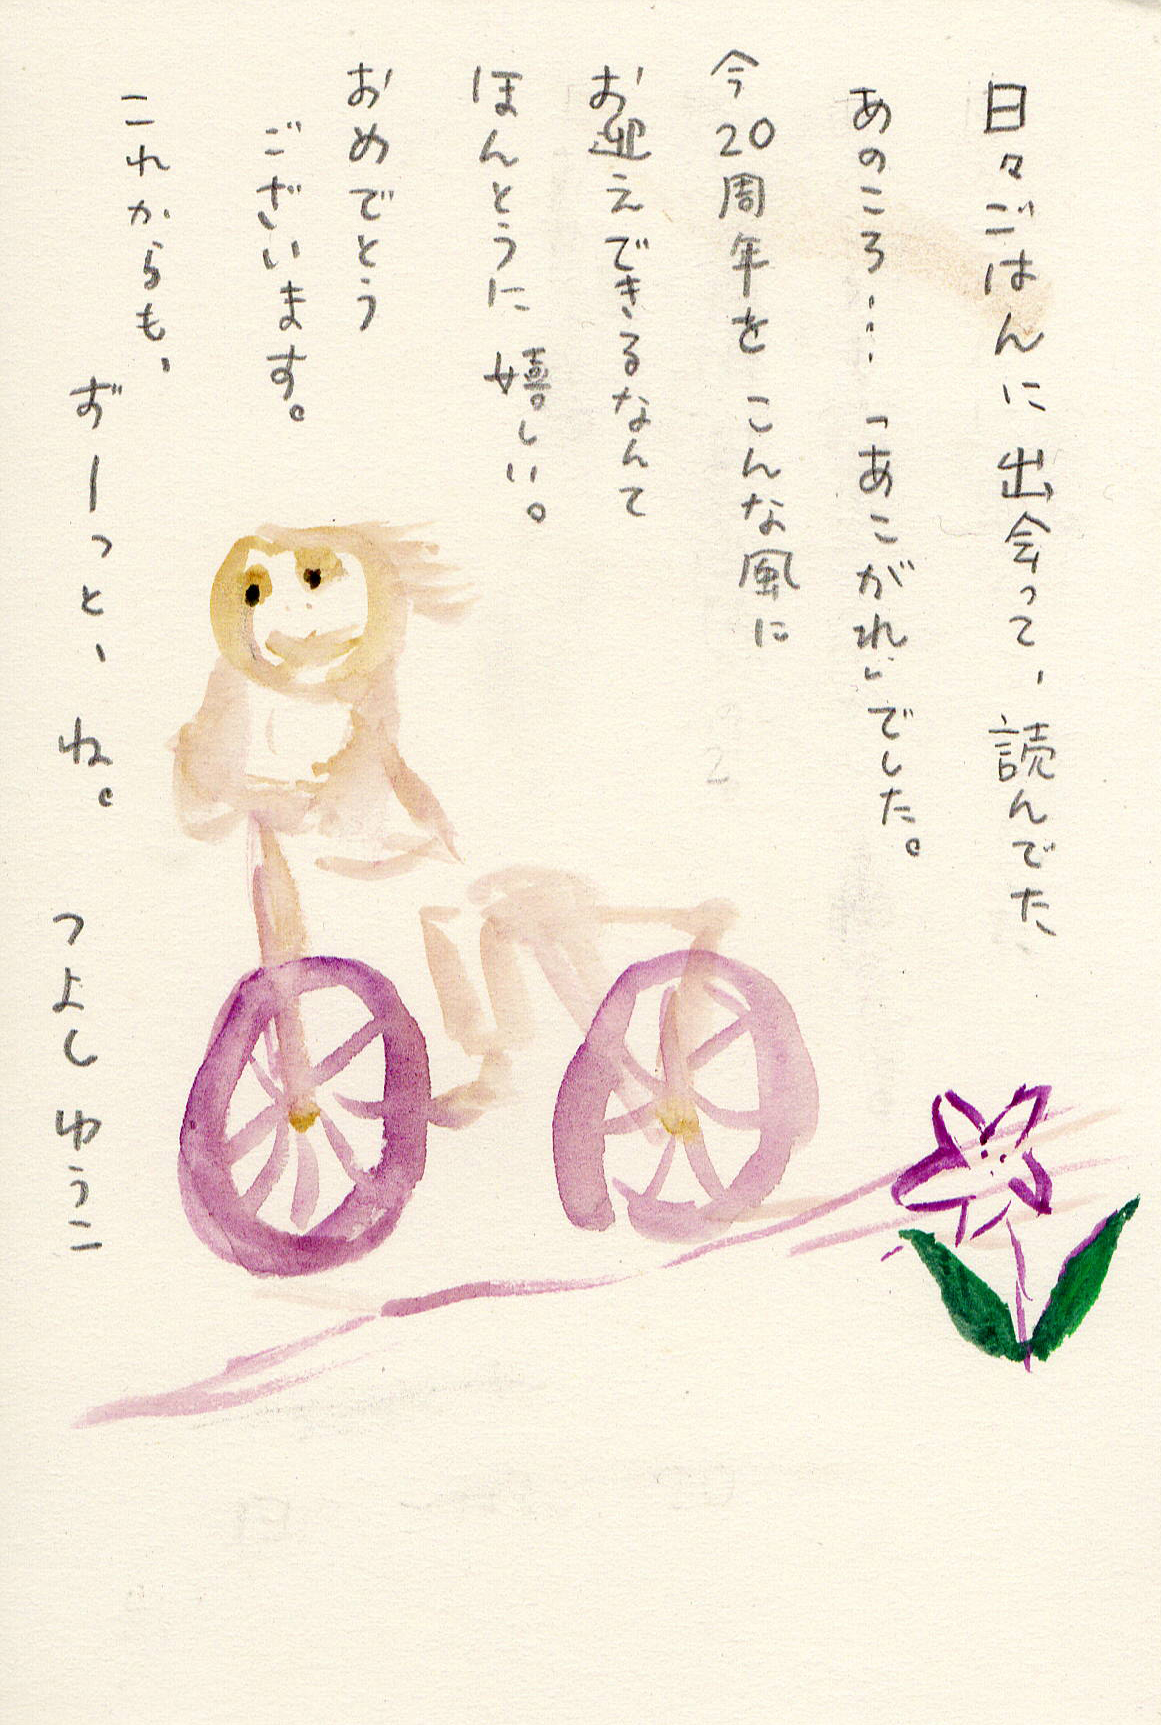 日々ごはんに出会って、読んでた
あのころ・・・「あこがれ」でした。
今20周年をこんな風に
お迎えできるなんて
ほんとうに嬉しい。
おめでとう
ございます。
これからも、
ずーっと、ね。
つよしゆうこ